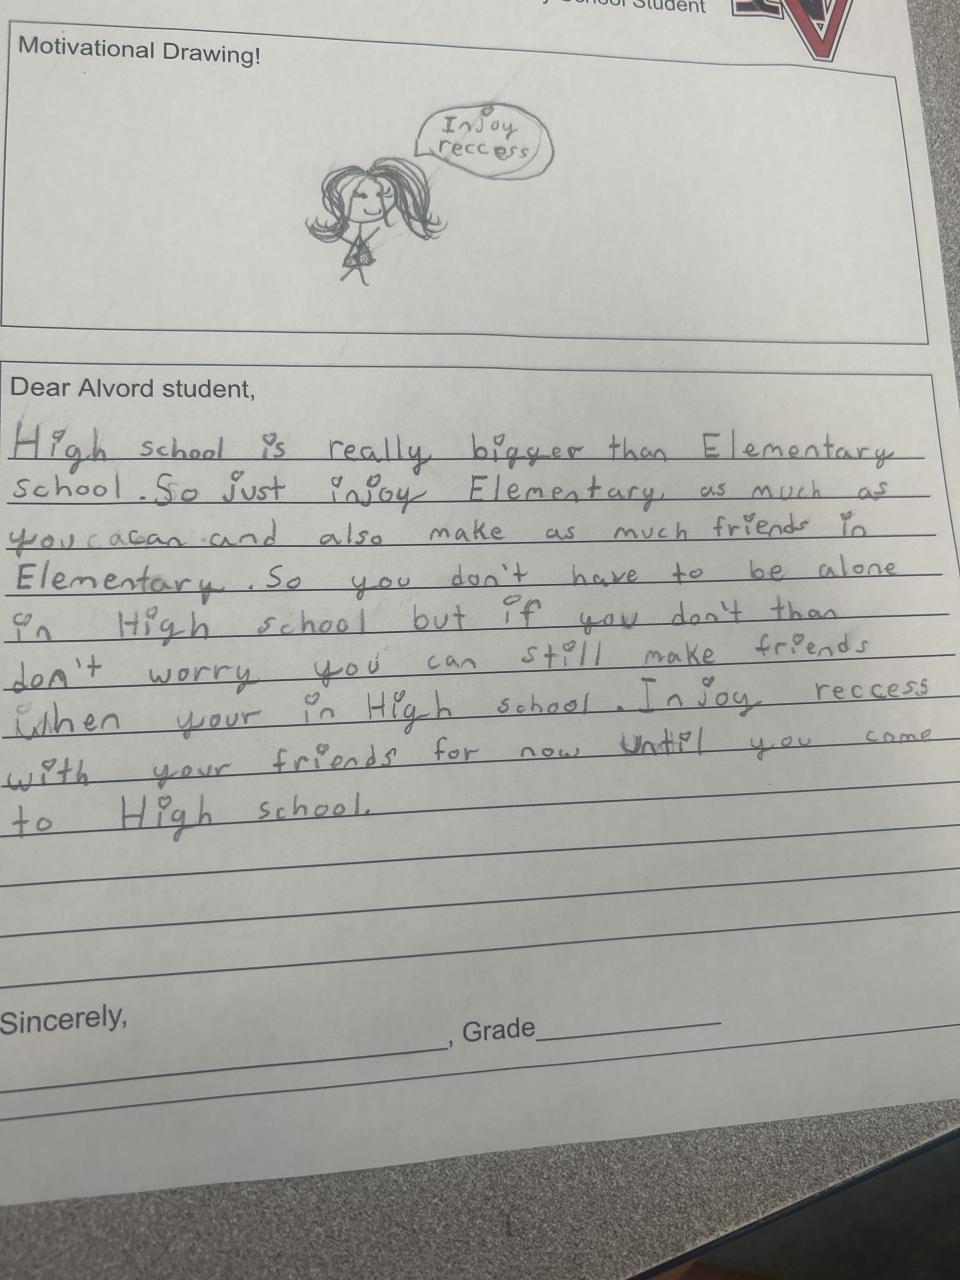 School Student
Motivational Drawing!
Injoy
reccess
Dear Alvord student,
High school is really bigger than Elementary
school. So just injoy Elementary as much as
you cacan and also make as much friends in
Elementary. So you don't have to be alone
in High school but if you don't than
don't worry you can still make friends
when your in High school. Injoy reccess
with your friends for now until you come
to High school.
Sincerely,
, Grade